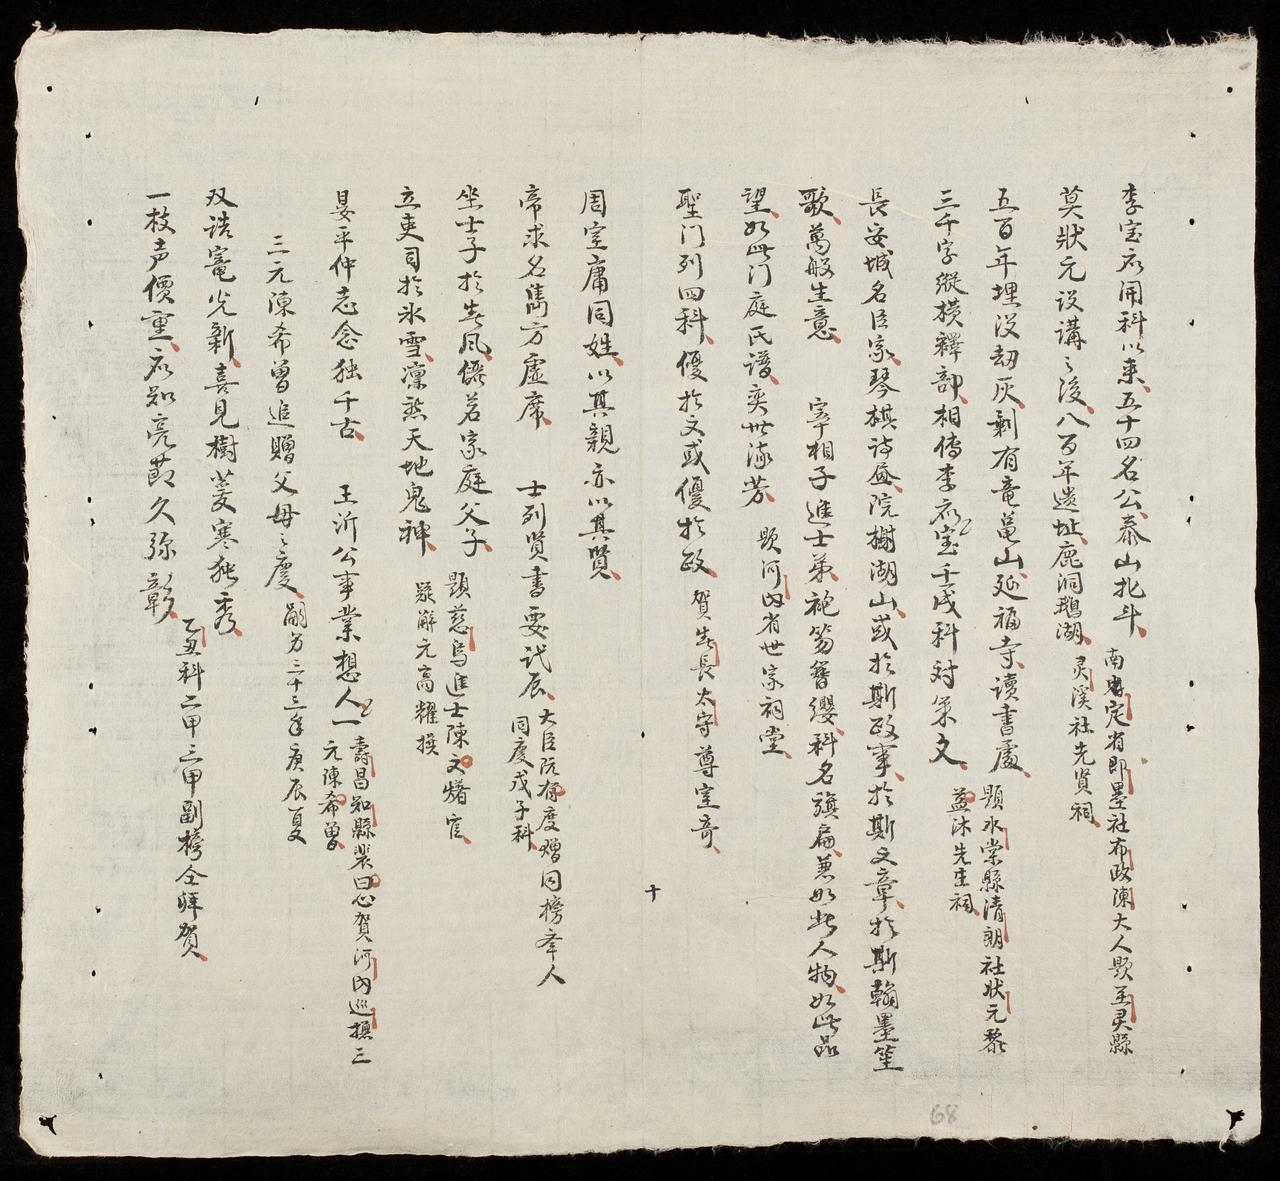 李室辰開科以来五十四名公泰山北斗 南定省即墨社布政陳大人題至灵縣
莫狀元設講之後八百年遗址鹿洞鵝湖 灵溪社先賢祠
五百年埋没劫灰剩有竜菖山延福寺讀書處 題水棠縣清朗社狀元黎
三千字縱横釋部相傳李辰室千戊科对策文 益沐先生祠
長安城名臣家琴棋诗画院榭湖山或於斯政事於斯文章於斯翰墨笙
歌萬般生意 宰相子進士弟袍笏簪纓科名旗扁甚如此人物如此品
望如此门庭氏譜奕世流芳 題河内省世宗祠堂
聖门列四科優於文或優於政 賀長太守尊室奇
十
周室庸同姓以其親亦以其賢
帝求名雋方虚席 士列贤書要识辰 大臣阮有度赠同榜举人
同慶戊子科
坐士子於春風儼若家庭父子 題慈烏進士陳文㷮官
立吏司於氷雪凛然天地鬼神 疑解元高耀撰
晏平仲志念独千古 王沂公事業想人一 壽昌知縣裴曰心賀河内巡撫三
元陳希曾
三元陳希曾追赠父母之慶 嗣另三十三年庚辰夏
双诰竃光新喜見樹萲寒独秀
一枝声價重辰知亮莭久弥彰
乙丑科二甲三甲副榜仝拜賀
68